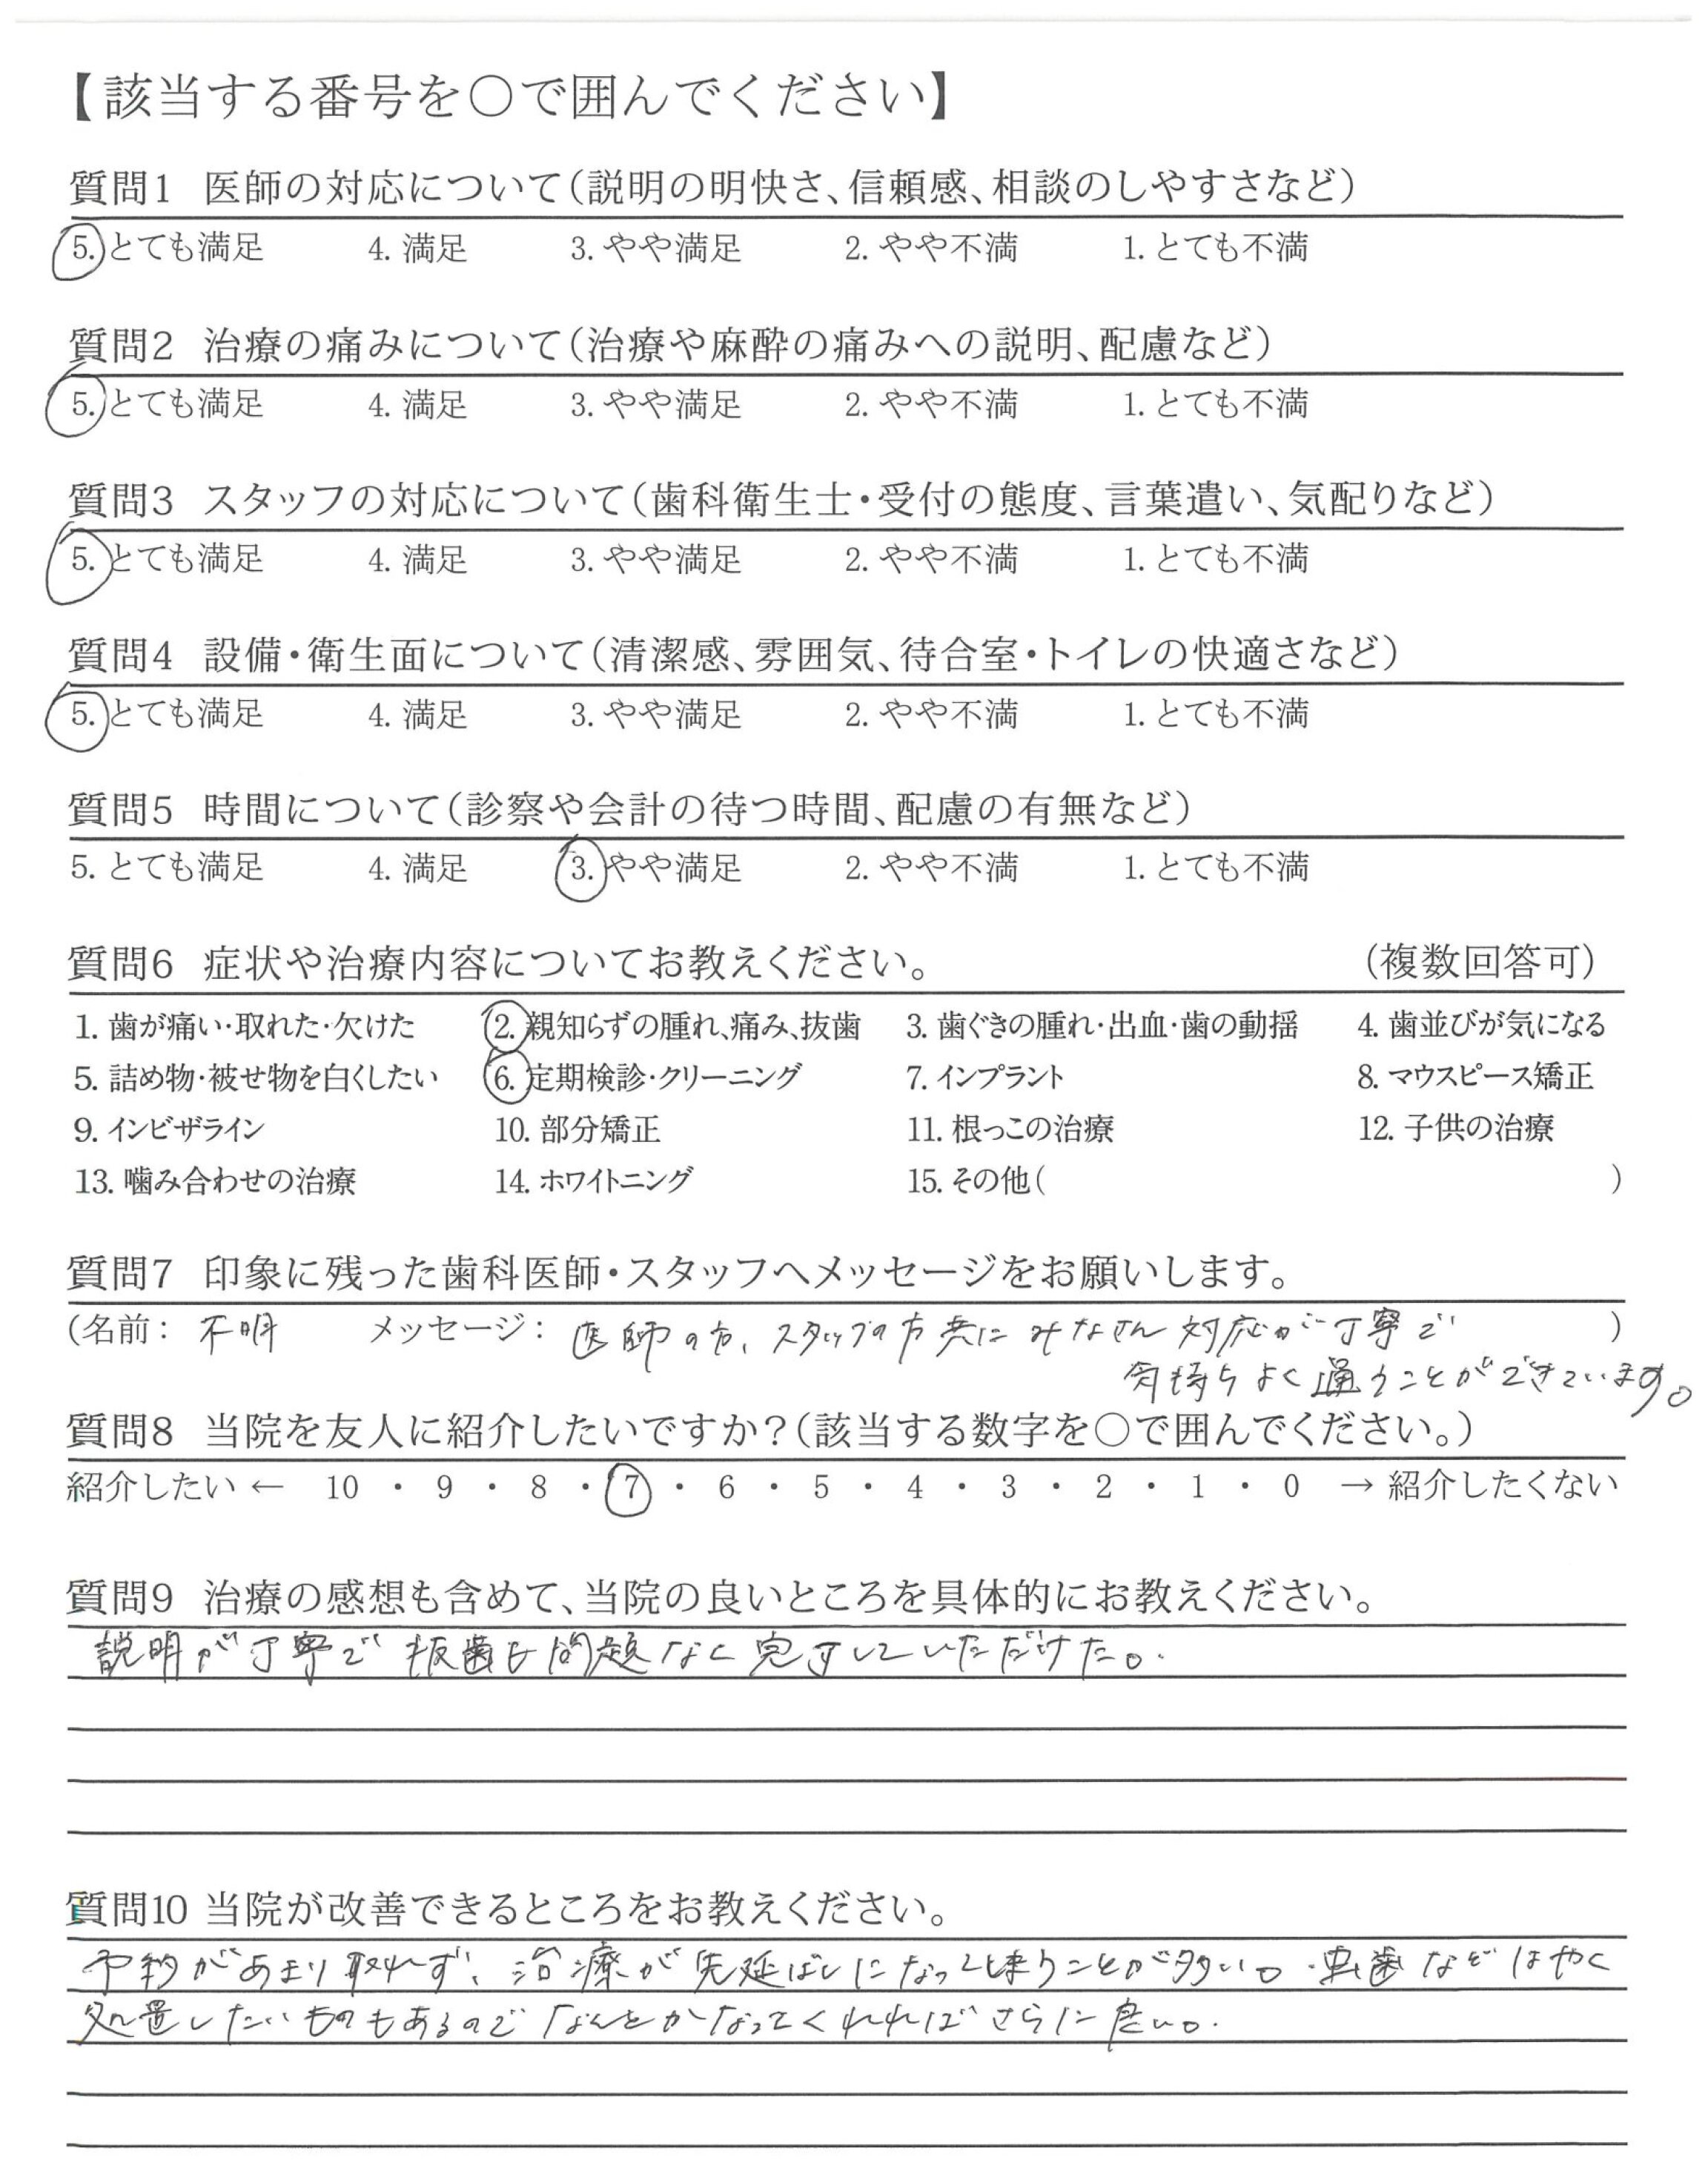 【該当する番号を○で囲んでください】
質問1 医師の対応について(説明の明快さ、信頼感、相談のしやすさなど)
5. とても満足 4. 満足 3. やや満足 2. やや不満 1. とても不満
質問2 治療の痛みについて(治療や麻酔の痛みへの説明、配慮など)
5. とても満足 4. 満足 3. やや満足 2. やや不満 1. とても不満
質問3 スタッフの対応について(歯科衛生士・受付の態度、言葉遣い、気配りなど)
5. とても満足 4. 満足 3. やや満足 2. やや不満 1. とても不満
質問4 設備・衛生面について(清潔感、雰囲気、待合室・トイレの快適さなど)
5. とても満足 4. 満足 3. やや満足 2. やや不満 1. とても不満
質問5 時間について(診察や会計の待つ時間、配慮の有無など)
5. とても満足 4. 満足 3. やや満足 2. やや不満 1. とても不満
質問6 症状や治療内容についてお教えください。 (複数回答可)
1. 歯が痛い・取れた・欠けた 2. 親知らずの腫れ、痛み、抜歯 3. 歯ぐきの腫れ・出血・歯の動揺 4. 歯並びが気になる
5. 詰め物・被せ物を白くしたい 6. 定期検診・クリーニング 7. インプラント 8. マウスピース矯正
9. インビザライン 10. 部分矯正 11. 根っこの治療 12. 子供の治療
13. 噛み合わせの治療 14. ホワイトニング 15. その他( )
質問7 印象に残った歯科医師・スタッフへメッセージをお願いします。
(名前: 不明 メッセージ: 医師の方、スタッフの方共にみなさん対応が丁寧で )
気持ちよく通うことができています。
質問8 当院を友人に紹介したいですか?(該当する数字を○で囲んでください。)
紹介したい ← 10 ・ 9 ・ 8 ・ 7 ・ 6 ・ 5 ・ 4 ・ 3 ・ 2 ・ 1 ・ 0 → 紹介したくない
質問9 治療の感想も含めて、当院の良いところを具体的にお教えください。
説明が丁寧で抜歯も問題なく完了していただけた。
質問10 当院が改善できるところをお教えください。
予約があまり取れず、治療が先延ばしになってしまうことが多い。虫歯などはやく
処置したいものもあるのでなんとかなってくれればさらに良い。